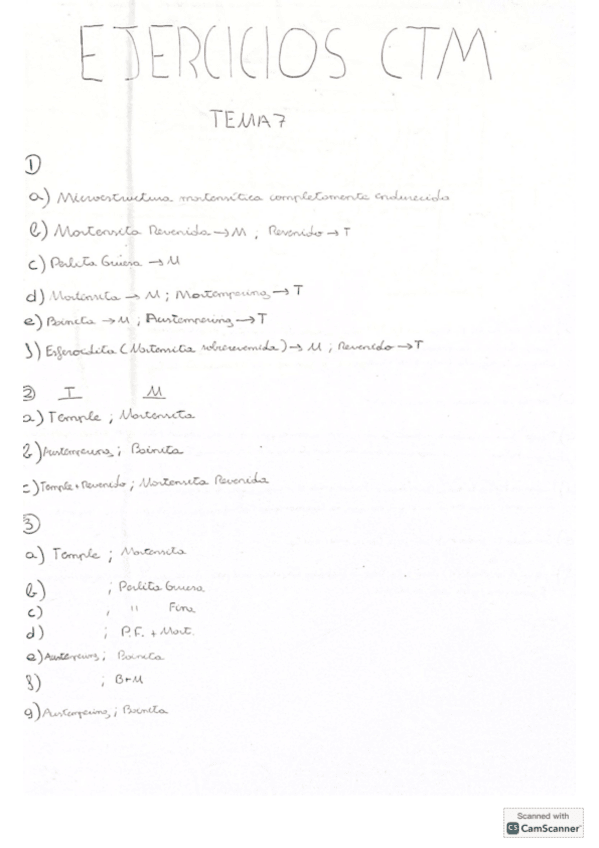 EJERCICIOS CTM
TEMA 7
①
a) Microestructura martensítica completamente endurecida
b) Martensita Revenida → M ; Revenido → T
c) Perlita Gruesa → M
d) Martensita → M ; Martempering → T
e) Bainita → M ; Austempering → T
f) Esferoidita (Martensita sobrerevenida) → M ; Revenido → T
② T M
a) Temple ; Martensita
b) Austempering ; Bainita
c) Temple + Revenido ; Martensita Revenida
③
a) Temple ; Martensita
b) ; Perlita Gruesa
c) ; " Fina
d) ; P.F. + Mart.
e) Austempering ; Bainita
f) ; B+M
g) Austempering ; Bainita
Scanned with
CS CamScanner